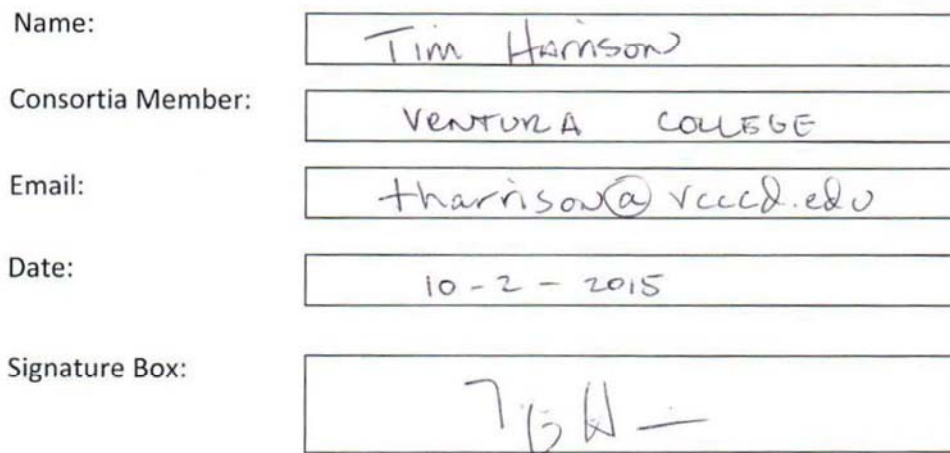 Name: Tim Harrison
Consortia Member: VENTURA COLLEGE
Email: tharrison@vcccd.edu
Date: 10-2-2015
Signature Box: